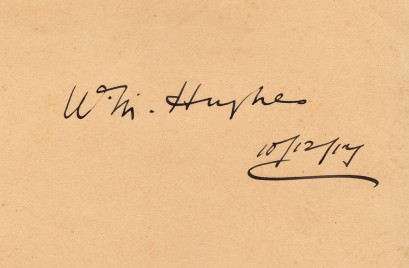 W. M. Hughes
10/12/17